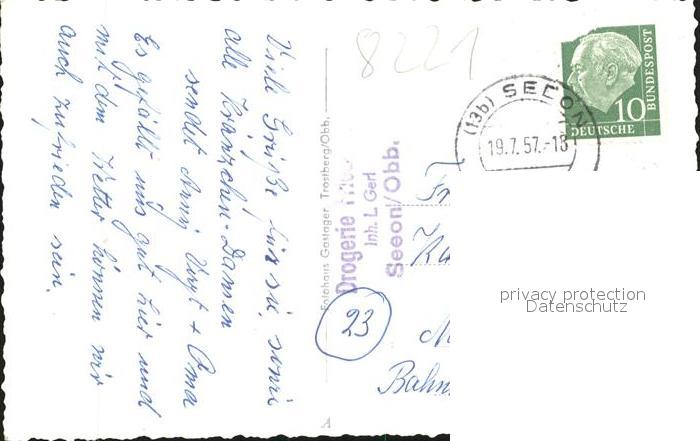 Viele Grüße für sie, sowie
alle Kränzchen-Damen
sendet Anny Vogt + Oma
Es gefällt uns gut hier und
mit dem Wetter können wir
auch zufrieden sein.
8221
Fotohaus Gastager, Trostberg/Obb.
Drogerie
Inh. L. Gerl
Seeon/Obb.
(13b) SEEON
19.7.57.-18
10
DEUTSCHE
BUNDESPOST
23
Fr
M
Bahn
privacy protection
Datenschutz